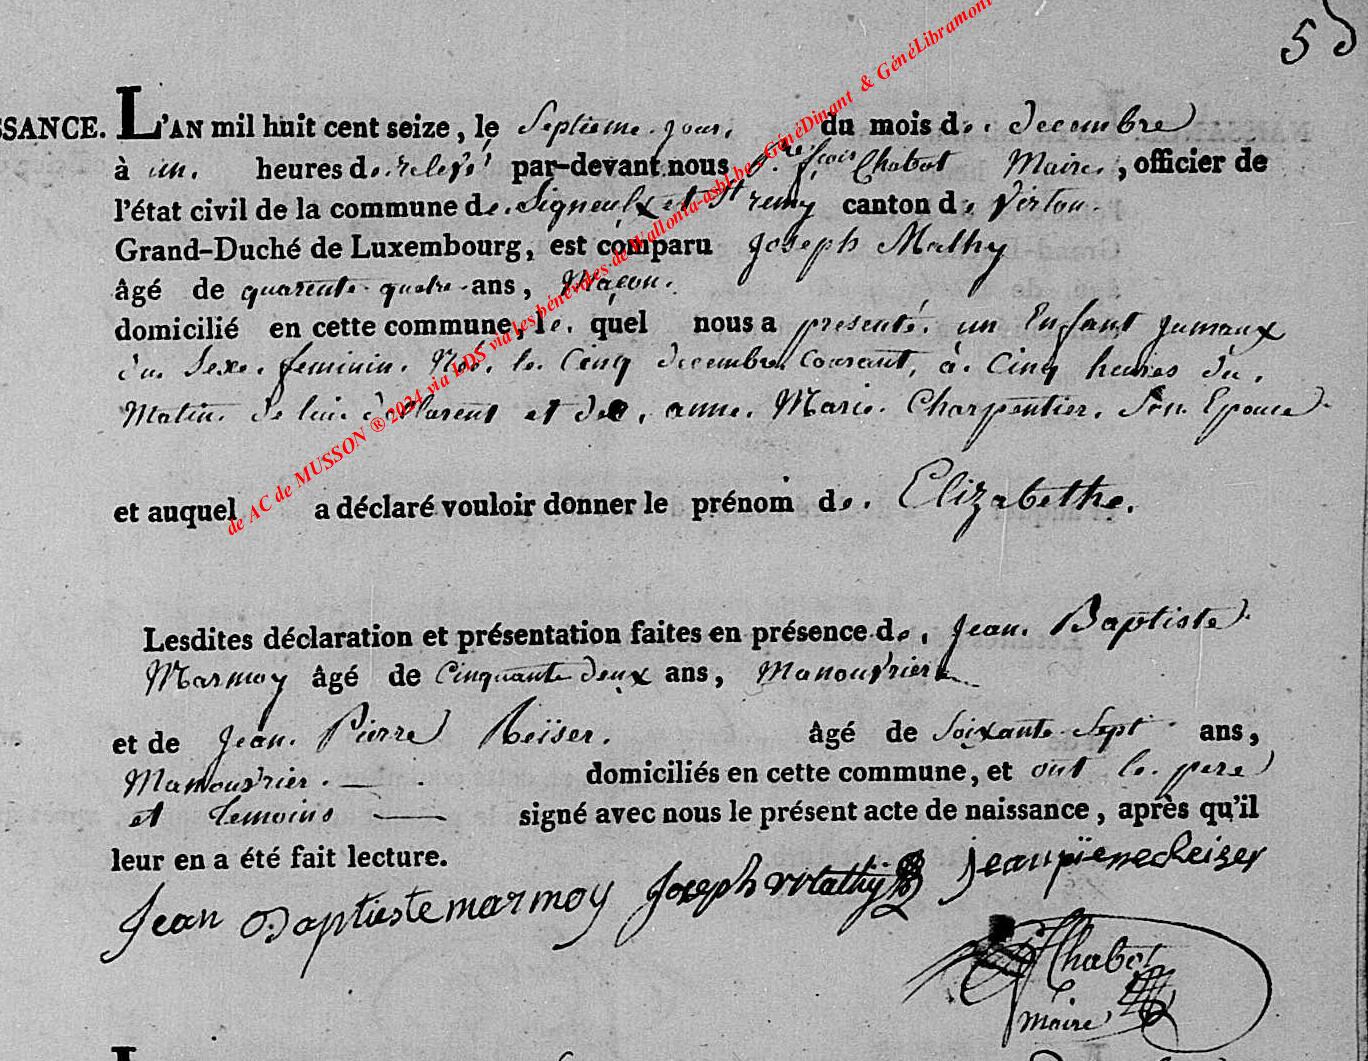 5
SSANCE. L'AN mil huit cent seize, le Septieme jour. du mois de decembre
à un. heures de relevé par-devant nous fçois Chabot Maire, officier de
l'état civil de la commune de Signeulx et St remy canton de Virton.
Grand-Duché de Luxembourg, est comparu Joseph Mathy
âgé de quarente quatre ans, Maçon.
domicilié en cette commune, le quel nous a presenté un Enfant Jumaux
du Sexe feminin. Né le Cinq decembre Courant, à Cinq heures du
Matin de lui declarent et de anne Marie Charpentier. Son Epouce
et auquel a déclaré vouloir donner le prénom de Elizabethe.
Lesdites déclaration et présentation faites en présence de Jean Baptiste
Marmoy âgé de Cinquante deux ans, Manouvrier
et de Jean Pierre Reïser. âgé de Soixante Sept ans,
Manouvrier. domiciliés en cette commune, et ont le pere
et temoins signé avec nous le présent acte de naissance, après qu'il
leur en a été fait lecture.
Jean Baptieste marmoy Joseph Mathy Jean pïerre Reiser
Chabot
Maire
de AC de MUSSON ® 2024 via LDS via les bénévoles de Wallonia-asbl.be - GénéDinant & GénéLibramont